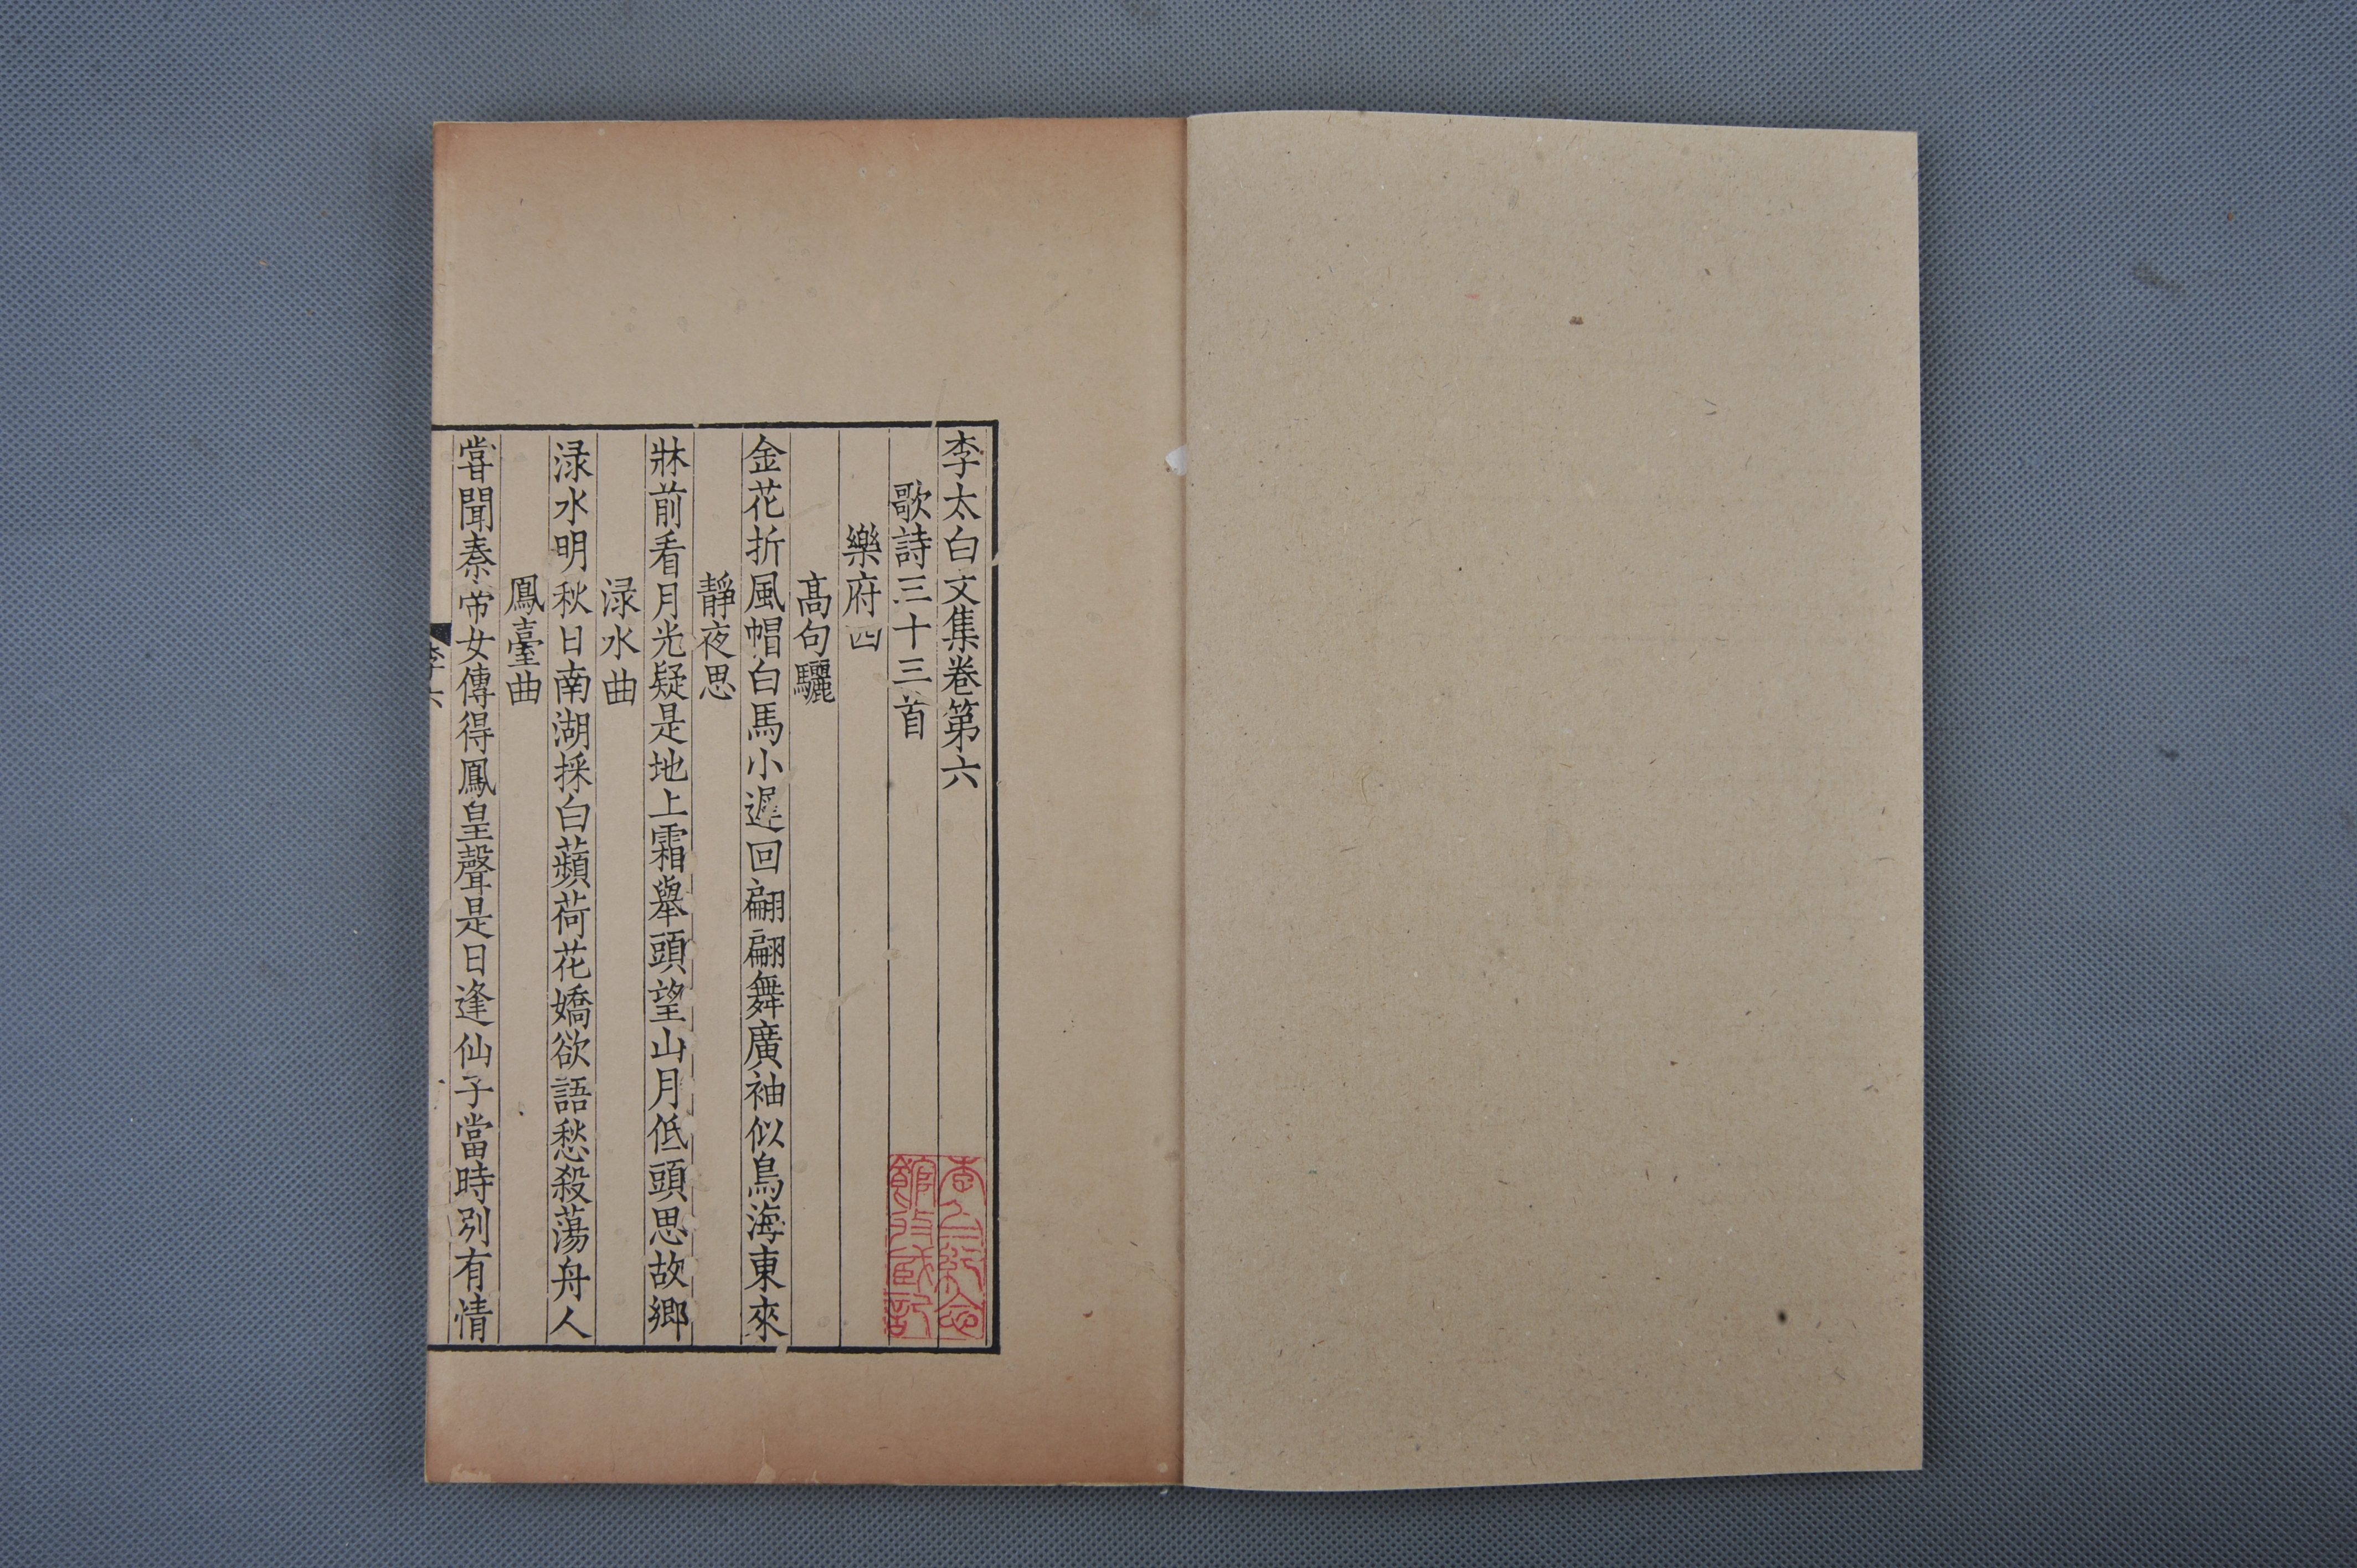 李太白文集卷第六
歌詩三十三首
樂府四
高句驪
金花折風帽白馬小遲回翩翩舞廣袖似鳥海東來
靜夜思
牀前看月光疑是地上霜舉頭望山月低頭思故鄉
渌水曲
渌水明秋日南湖採白蘋荷花嬌欲語愁殺蕩舟人
鳳臺曲
嘗聞秦帝女傳得鳳皇聲是日逢仙子當時別有情
李六